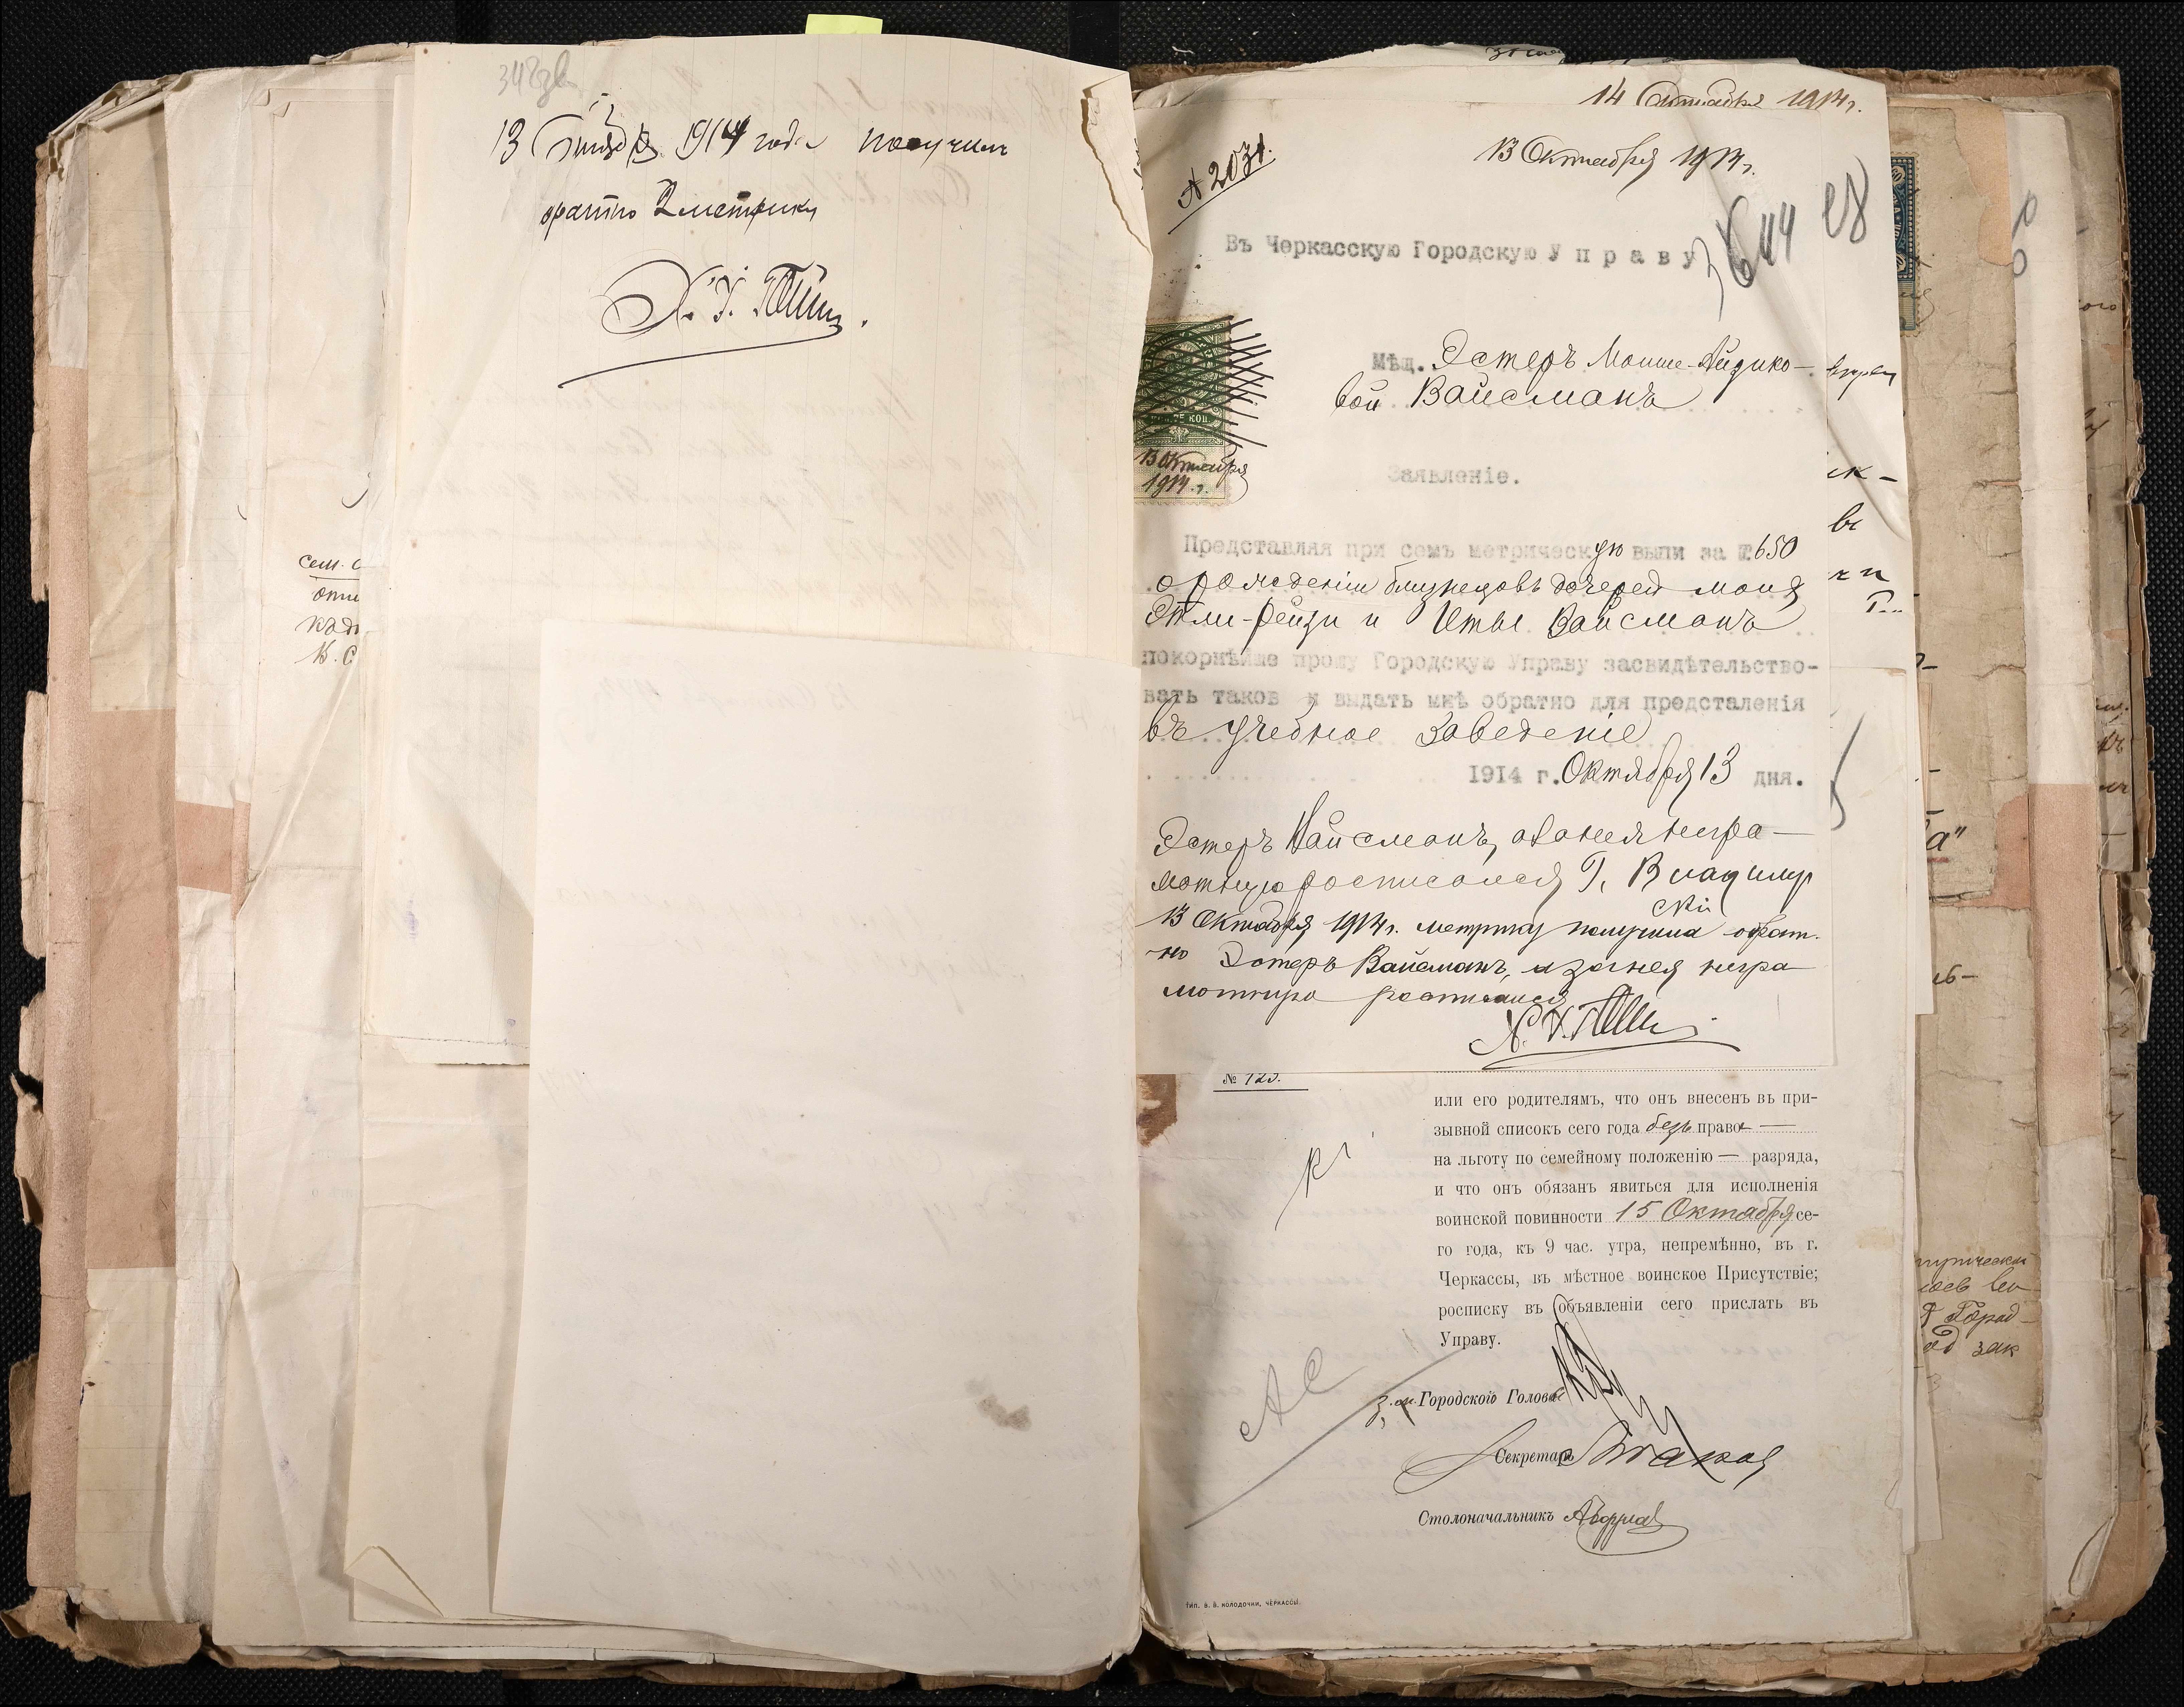 13 1914 года получил
обратно 2 метрики
сем. с
14 Октября 1914 г.
13 Октября 1914 г.
№ 2031.
Въ Черкасскую Городскую Управу
3644
Мѣщ. Эстеръ Мошие-Айзико-
вой Вайсманъ
КОП.
13 Октября
1914 г.
Заявленіе.
Представляя при семъ метрическую выпи за № 650
о рожденіи близнецовъ дочерей моихъ
Этли-Рейзи и Иты Вайсманъ
покорнѣйше прошу Городскую Управу засвидѣтельство-
вать таков и выдать мнѣ обратно для предсталенія
въ учебное заведеніе
1914 г. Октября 13 дня.
Эстеръ Вайсманъ, а за нея негра-
мотную росписался Г. Владимир
скій
13 Октября 1914 г. метрику получила обрат-
но Эстеръ Вайсманъ, а за нея негра
мотную росписался
№ 123.
или его родителямъ, что онъ внесенъ въ при-
зывной списокъ сего года безъ права —
на льготу по семейному положенію — разряда,
и что онъ обязанъ явиться для исполненія
воинской повинности 15 Октября се-
го года, къ 9 час. утра, непремѣнно, въ г.
Черкассы, въ мѣстное воинское Присутствіе;
росписку въ объявленіи сего прислать въ
Управу.
Городского Головы
Секретарь
Столоначальникъ
ТИП. В. В. КОЛОДОЧКИ, ЧЕРКАССЫ.